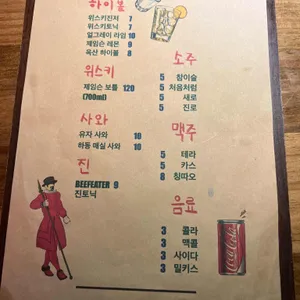 하이볼
위스키진저 7
위스키토닉 7
얼그레이 라임 10
제임슨 레몬 9
옥산 하이볼 8
위스키
제임슨 보틀 120
(700ml)
사와
유자 사와 10
하동 매실 사와 10
진
BEEFEATER 9
진토닉
소주
5 참이슬
5 처음처럼
5 새로
5 진로
맥주
5 테라
5 카스
8 칭따오
음료
3 콜라
3 맥콜
3 사이다
3 밀키스
Coca-Cola